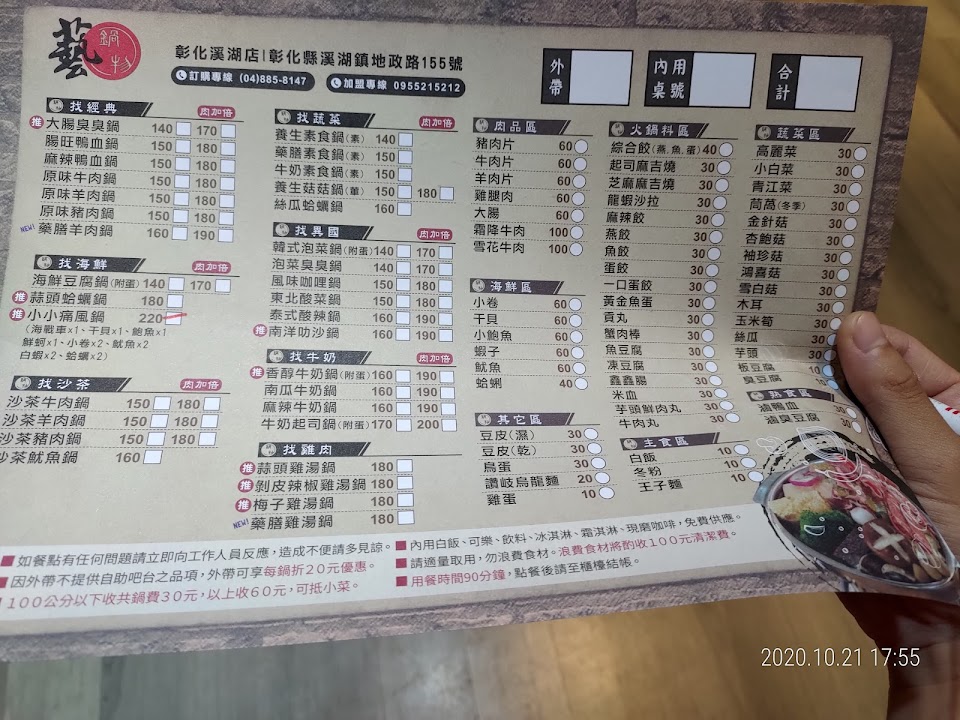 藝 鍋物
彰化溪湖店|彰化縣溪湖鎮地政路155號
訂購專線 (04)885-8147 加盟專線 0955215212
外帶
內用桌號
合計
找經典 肉加倍
推 大腸臭臭鍋 140 170
腸旺鴨血鍋 150 180
麻辣鴨血鍋 150 180
原味牛肉鍋 150 180
原味羊肉鍋 150 180
原味豬肉鍋 150 180
NEW! 藥膳羊肉鍋 160 190
找海鮮 肉加倍
海鮮豆腐鍋(附蛋) 140 170
推 蒜頭蛤蠣鍋 180
推 小小痛風鍋 220
(海戰車x1、干貝x1、鮑魚x1
鮮蚵x1、小卷x2、魷魚x2
白蝦x2、蛤蠣x2)
找沙茶 肉加倍
沙茶牛肉鍋 150 180
沙茶羊肉鍋 150 180
沙茶豬肉鍋 150 180
沙茶魷魚鍋 160
找蔬菜 肉加倍
養生素食鍋(素) 140
藥膳素食鍋(素) 150
牛奶素食鍋(素) 150
養生菇菇鍋(葷) 150 180
絲瓜蛤蠣鍋 160
找異國 肉加倍
韓式泡菜鍋(附蛋) 140 170
泡菜臭臭鍋 140 170
風味咖哩鍋 150 180
東北酸菜鍋 150 180
泰式酸辣鍋 160 190
推 南洋叻沙鍋 160 190
找牛奶 肉加倍
推 香醇牛奶鍋(附蛋) 160 190
南瓜牛奶鍋 160 190
麻辣牛奶鍋 160 190
牛奶起司鍋(附蛋) 170 200
找雞肉
推 蒜頭雞湯鍋 180
推 剝皮辣椒雞湯鍋 180
推 梅子雞湯鍋 180
NEW! 藥膳雞湯鍋 180
肉品區
豬肉片 60
牛肉片 60
羊肉片 60
雞腿肉 60
大腸 60
霜降牛肉 100
雪花牛肉 100
海鮮區
小卷 60
干貝 60
小鮑魚 60
蝦子 60
魷魚 60
蛤蜊 40
其它區
豆皮(濕) 30
豆皮(乾) 30
鳥蛋 30
讚岐烏龍麵 20
雞蛋 10
火鍋料區
綜合餃(燕,魚,蛋) 40
起司麻吉燒 30
芝麻麻吉燒 30
龍蝦沙拉 30
麻辣餃 30
燕餃 30
魚餃 30
蛋餃 30
一口蛋餃 30
黃金魚蛋 30
貢丸 30
蟹肉棒 30
魚豆腐 30
凍豆腐 30
鑫鑫腸 30
米血 30
芋頭鮮肉丸 30
牛肉丸 30
主食區
白飯 10
冬粉 10
王子麵 10
蔬菜區
高麗菜 30
小白菜 30
青江菜 30
茼萵(冬季) 30
金針菇 30
杏鮑菇 30
袖珍菇 30
鴻喜菇 30
雪白菇 30
木耳 30
玉米筍 30
絲瓜 30
芋頭 30
板豆腐 10
臭豆腐 10
熟食區
滷鴨血 30
滷臭豆腐 30
如餐點有任何問題請立即向工作人員反應，造成不便請多見諒。
因外帶不提供自助吧台之品項，外帶可享每鍋折20元優惠。
100公分以下收共鍋費30元，以上收60元，可抵小菜。
內用白飯、可樂、飲料、冰淇淋、霜淇淋、現磨咖啡，免費供應。
請適量取用，勿浪費食材。浪費食材將酌收100元清潔費。
用餐時間90分鐘，點餐後請至櫃檯結帳。
2020.10.21 17:55